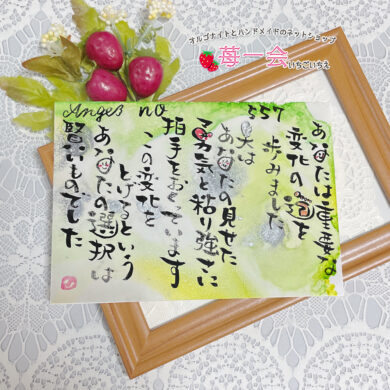 オルゴナイトとハンドメイドのネットショップ
苺一会
いちごいちえ
Angel's no 557
あなたは重要な
変化の道を
歩みました
天は
あなたの見せた
勇気と粘り強さに
拍手をおくっています
この変化を
とげるという
あなたの選択は
賢いものでした